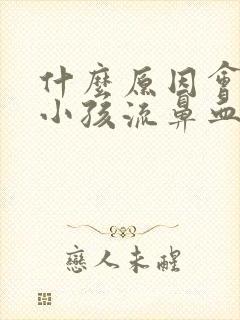 什麼原因會
小孩流鼻血
戀人未醒